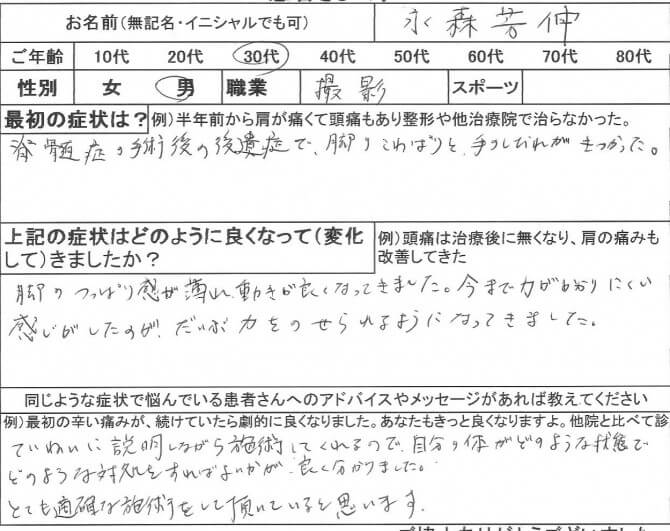 お名前(無記名・イニシャルでも可) 永森芳伸
ご年齢 10代 20代 30代 40代 50代 60代 70代 80代
性別 女 男 職業 撮影 スポーツ
最初の症状は? 例)半年前から肩が痛くて頭痛もあり整形や他治療院で治らなかった。
脊髄症の手術後の後遺症で、脚のこわばりと、手のしびれがきつかった。
上記の症状はどのように良くなって(変化して)きましたか? 例)頭痛は治療後に無くなり、肩の痛みも改善してきた
脚のつっぱり感が薄れ、動きが良くなってきました。今まで力がわかりにくい
感じがしたのが、だいぶ力をのせられるようになってきました。
同じような症状で悩んでいる患者さんへのアドバイスやメッセージがあれば教えてください
例)最初の辛い痛みが、続けていたら劇的に良くなりました。あなたもきっと良くなりますよ。他院と比べて診
ていねいに説明しながら施術してくれるので、自分の体がどのような状態で
どのような対処をすればよいかが、良く分かりました。
とても適確な施術をして頂いていると思います。